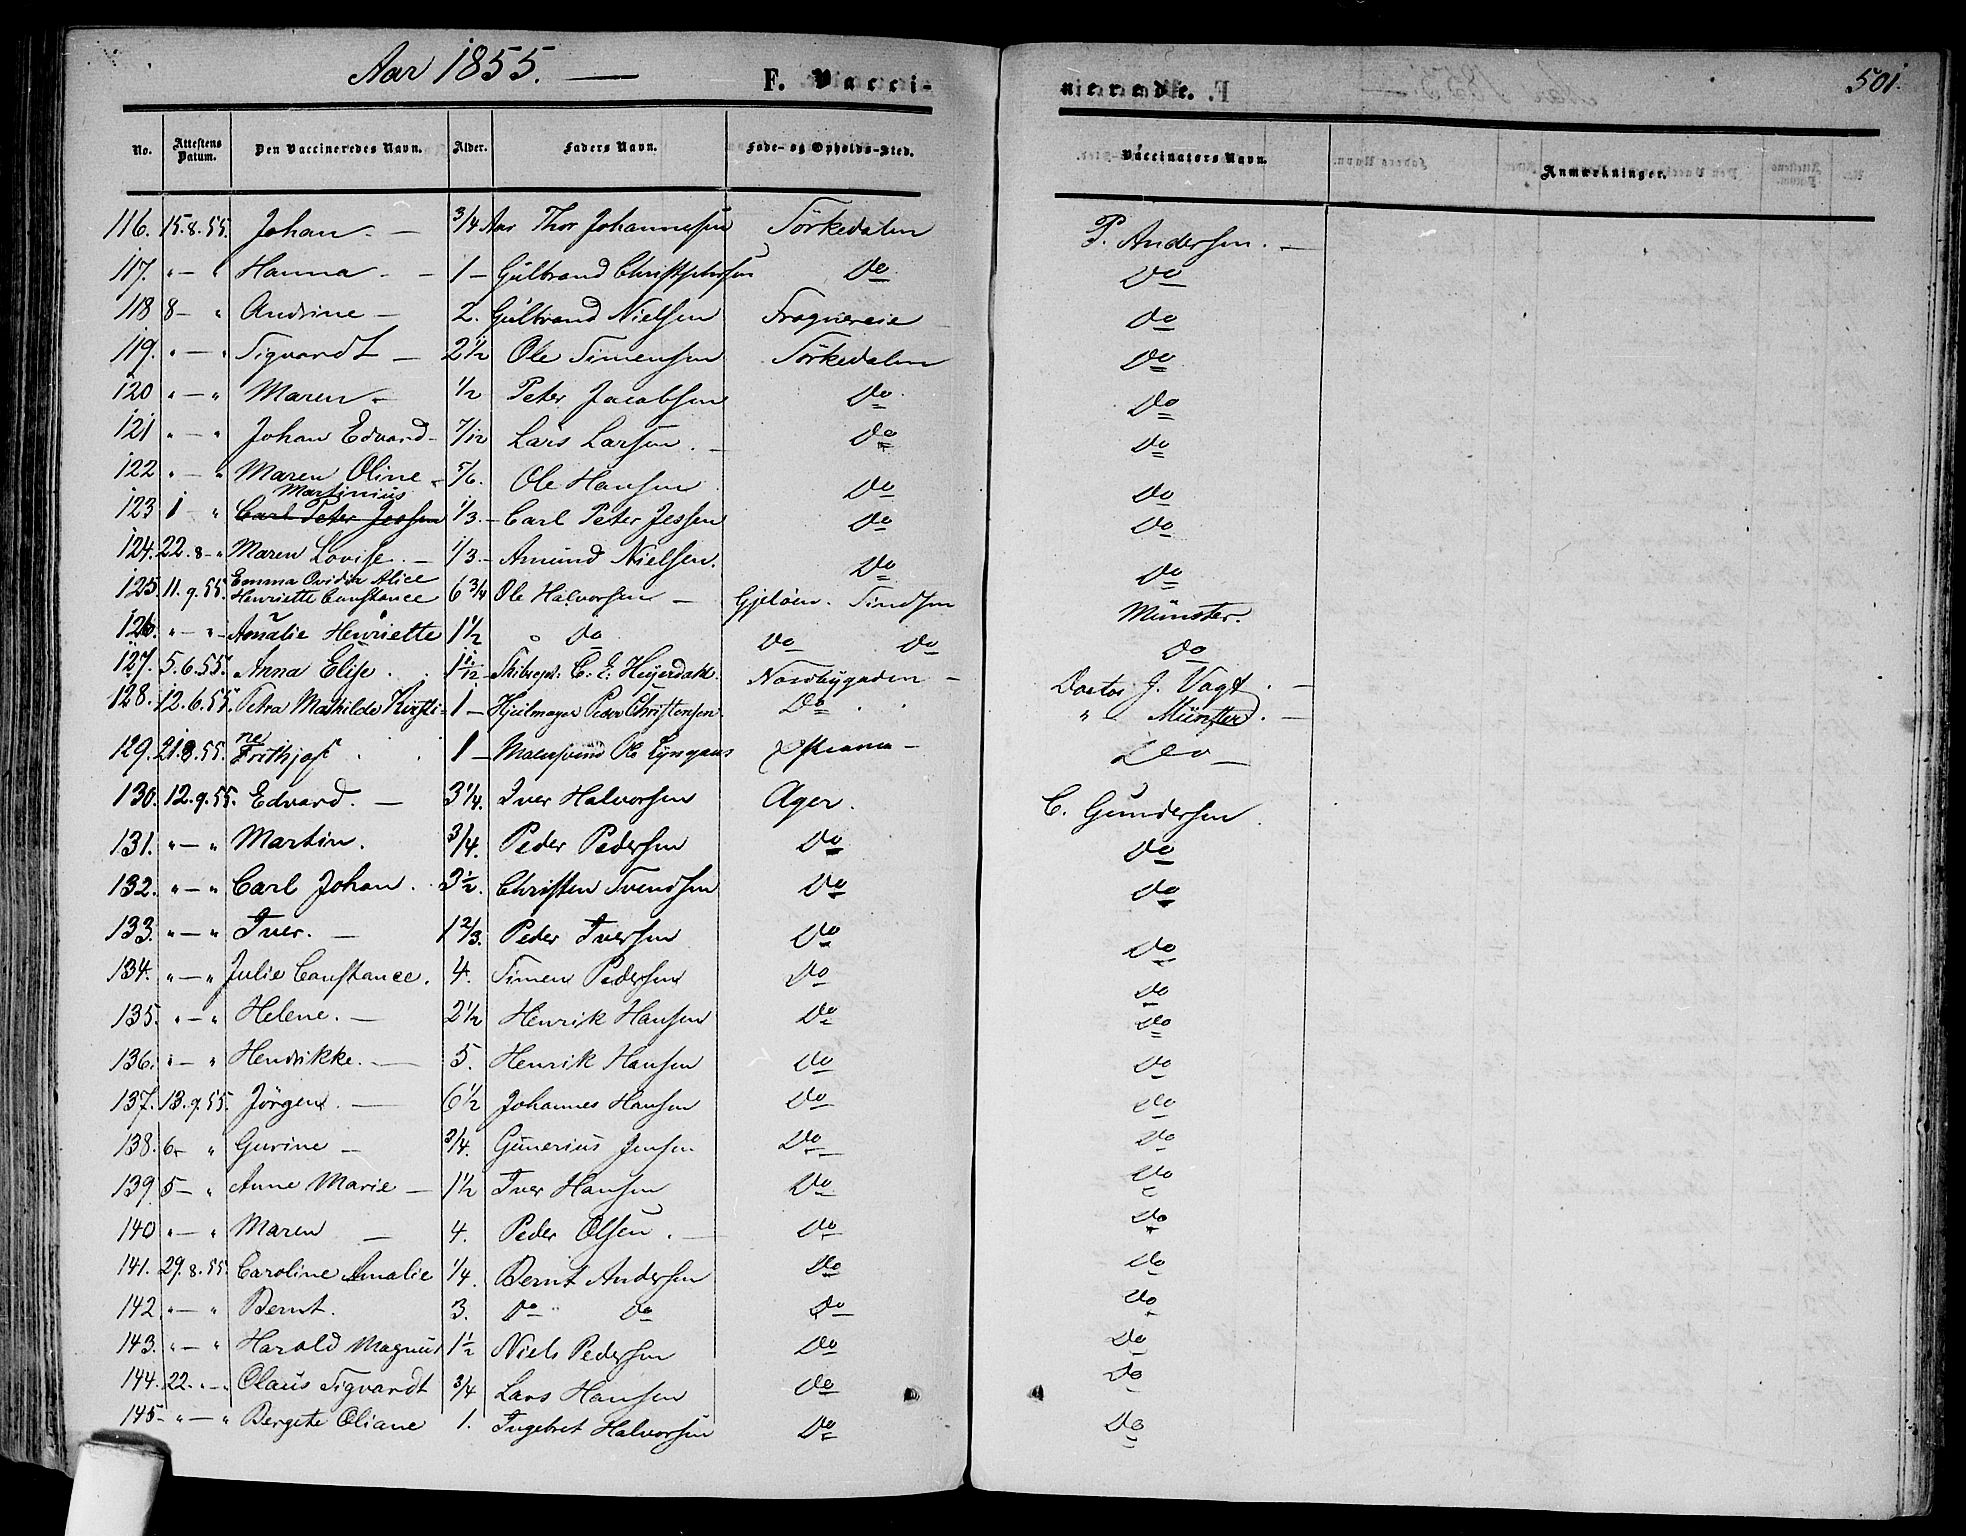 Aar 1855. —
F. Vacci- nerede.
501.
No. Attestens Datum. Den Vaccineredes Navn. Alder. Faders Navn. Føde- og Opholds-Sted. Vaccinators Navn. Anmærkninger.
116. 15.8.55. Johan. — 3/4 Aar Thor Johannesen Sörkedalen P. Andersen. —
117. " — " Hanna. — 1 — Gulbrand Christophersen Do Do
118 8 — " Andrine — 2. Gulbrand Nielsen Frognereie Do
119. " — " Sigvardt — 2 1/2 Ole Simensen Sörkedalen Do
120 " — " Maren — 1/2 Peter Jacobsen Do Do
121 " — " Johan Edvard — 7/12 Lars Larsen. — Do Do
122 " — " Maren Oline — 5/6. Ole Hansen Do Do
Martinius
123 1 " Carl Peter Jessen 1/3. — Carl Peter Jessen Do Do
124. 22.8 — " Maren Lovise. — 1/3. — Amund Nielsen. Do Do
Emma Ovidia Alice
125. 11.9.55. Henriette Constance 6 3/4 Ole Halvorsen — Gjelöen. Münster.
126. " — " — Amalie Henriette 1 1/2 " Do Do Do Do
127. 5.6.55. Anna Elise. 1 11/12 C. E. Heyerdahl. Nordbygaden — Doctor J. Vogt. —
128. 12.6.55. Petra Mathilde Kirsti- 1 — Hjulmager Peder Christensen. Do " Münster. —
ne
129. 21.8.55. Frithjof 1 — Malersvend Ole Do —
130. 12.9.55. Edvard. — 3 1/4. Iver Halvorsen Ager. C. Gundersen.
131. " — " Martin. 3/4. Peder Pedersen Do Do
132. " — " Carl Johan. 3 1/2. Christen Svendsen Do Do
133. " — " Iver. — 1 2/3. Peder Iversen Do Do
134. " — " Julie Constance. 4. Simen Pedersen Do Do
135. " — " Helene. — 2 1/2 Henrik Hansen Do Do
136. " — " Hendrikke. — 5. Henrik Hansen Do Do
137. 13.9.55. Jörgen. — 6 1/2 Johannes Hansen Do Do
138. 6 — " Gurine — 3/4. Gunerius Jensen Do Do
139. 5 — " Anne Marie — 1 1/2 Iver Hansen Do Do
140 " — " Maren — 4. Peder Olsen. — Do Do
141. 29.8.55. Caroline Amalie 1/4. Bernt Andersen Do Do
142 " — " Bernt. 3. Do " Do Do Do
143. " — " Harald Magnus 1 1/2 Niels Pedersen Do Do
144. 22. " — " Olaus Sigvardt 3/4 Lars Hansen Do Do
145 — " — " Bergete Oliane 1. Ingebret Halvorsen Do Do